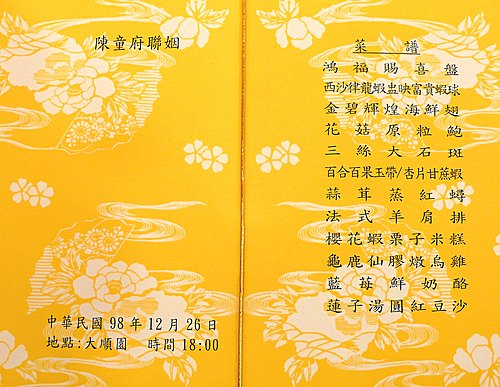 陳童府聯姻
中華民國 98 年 12 月 26 日
地點:大順園 時間 18:00
菜譜
鴻福賜喜盤
西沙律龍蝦盅映富貴蝦球
金碧輝煌海鮮翅
花菇原粒鮑
三絲大石斑
百合百果玉帶/杏片甘蔗蝦
蒜茸蒸紅蟳
法式羊肩排
櫻花蝦栗子米糕
龜鹿仙膠燉烏雞
藍莓鮮奶酪
蓮子湯圓紅豆沙